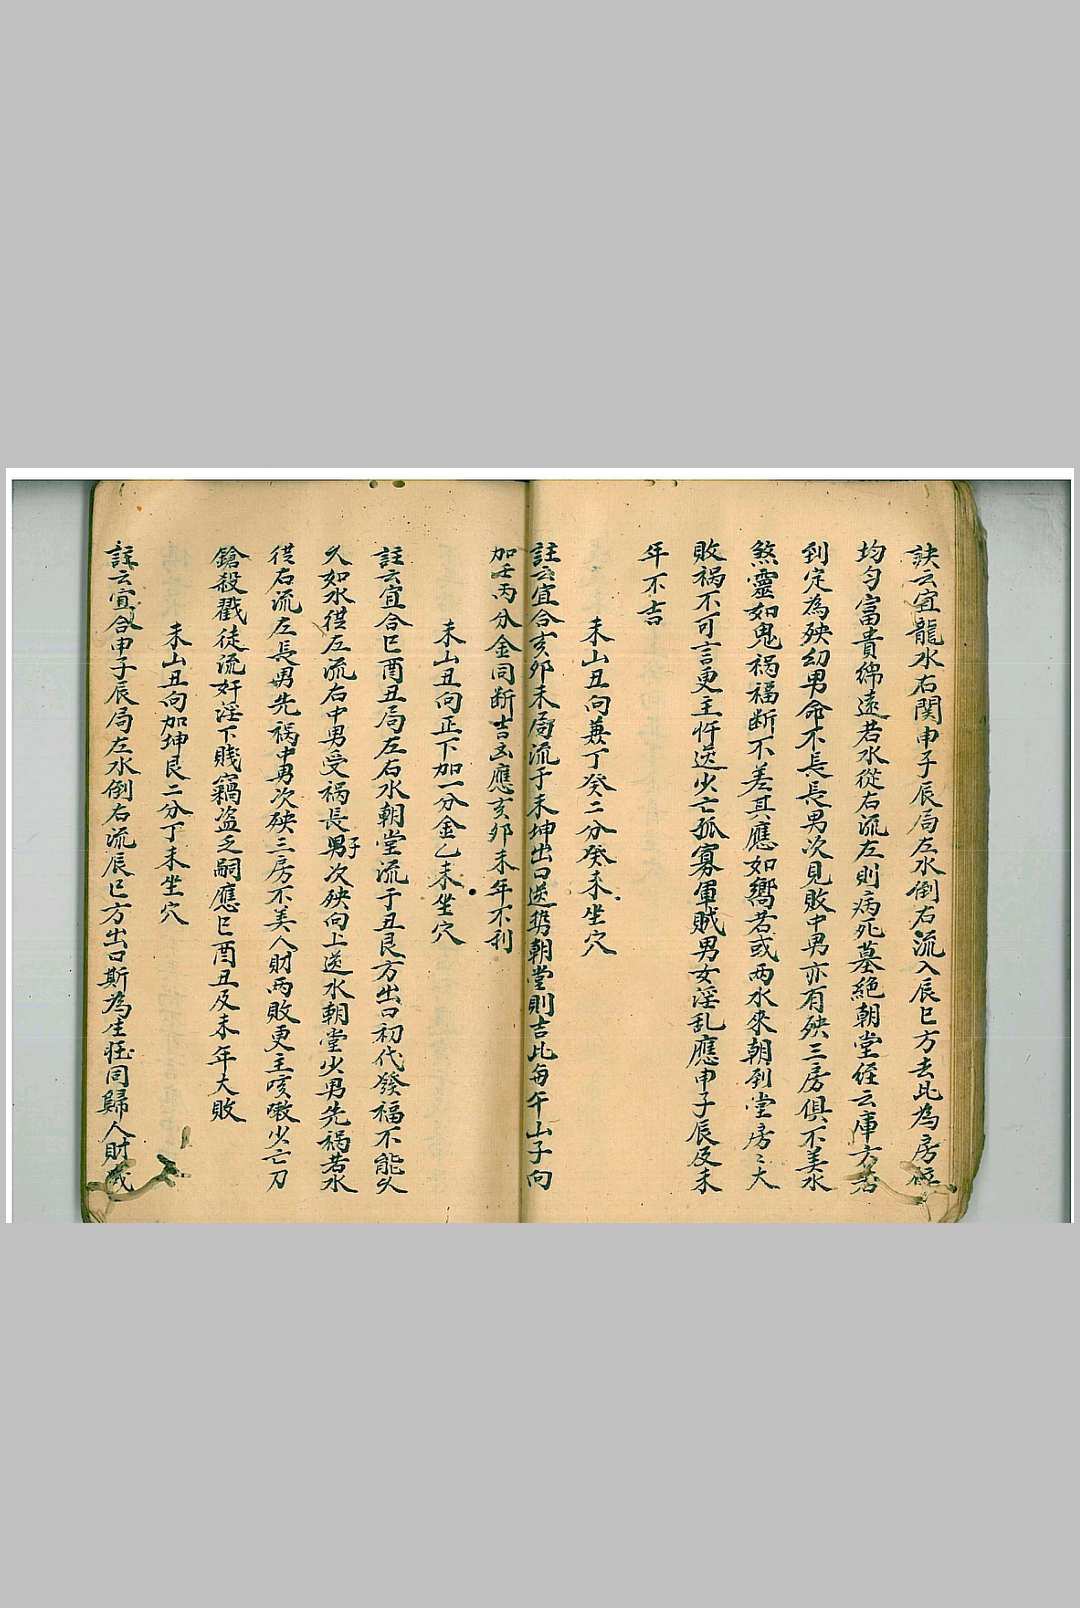 訣云宜龍水右関申子辰局左水倒右流入辰巳方去此為房
均匀富貴綿遠若水從右流左則病死墓絕朝堂經云庫方若
到定為殃幼男命不長長男次見敗中男亦有殃三房俱不美水
煞靈如鬼禍福断不差其應如嚮若或两水來朝到堂房〻大
敗禍不可言更主忤逆少亡孤寡軍賊男女淫乱應申子辰及未
年不吉
未山丑向兼丁癸二分癸未坐穴
註云宜合亥卯未局流于未坤出口逆勢朝堂則吉比每午山子向
加壬丙分金同断吉凶應亥卯未年不利
未山丑向正下加一分金乙未坐穴
註云宜合巳酉丑局左右水朝堂流于丑艮方出口初代發福不能久
久如水從左流右中男受禍長男子次殃向上逆水朝堂少男先禍若水
從右流左長男先禍中男次殃三房不美人財两敗更主咳嗽少亡刀
鎗殺戳徒流奸淫下賤竊盗乏嗣應巳酉丑及未年大敗
未山丑向加坤艮二分丁未坐穴
註云宜合申子辰局左水倒右流辰巳方出口斯為生旺同歸人財